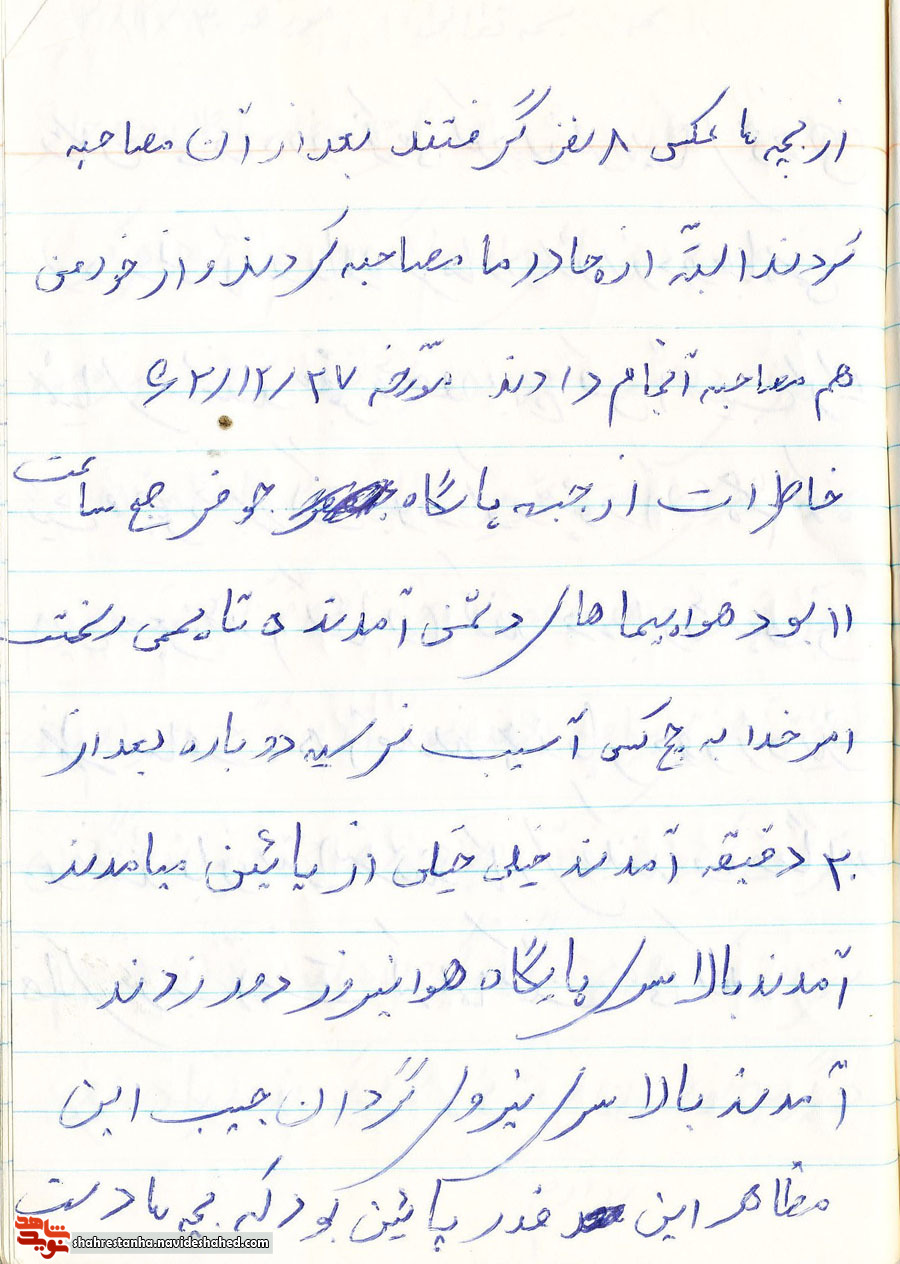 از بچه ها عکس ۸ نفر گرفتند بعد از آن مصاحبه
کردند البتّه از چادر ما مصاحبه کردند و از خود من
هم مصاحبه آنجام دادند مورّخه ۶۲/۱۲/۲۷
خاطرات از جبهه پایگاه جوفر صبح ساعت
۱۱ بود هواپیما های دشمن آمدند ۵ تا بمب ریخت
امر خدا به هیچ کس آسیب نرسید دوباره بعد از
۳۰ دقیقه آمدند خیلی خیلی از پائین میامدند
آمدند بالا سر پایگاه هوانیروز دور زدند
آمدند بالا سر نیروی گردان حبیب ابن
مظاهر این قدر پائین بود که بچه ها دست
نوید شاهد
shahrestanha.navideshahed.com